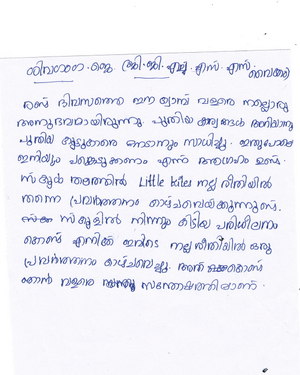 ശിവഗംഗ . ജെ ജി . ജി . എച്ച് . എസ് . എസ് . വൈക്കം
രണ്ട് ദിവസത്തെ ഈ ക്യാമ്പ് വളരെ നല്ലൊരു
അനുഭവമായിരുന്നു. പുതിയ കാര്യങ്ങൾ അറിയാനും
പുതിയ കൂട്ടുകാരെ നേടാനും സാധിച്ചു. ഇതുപോലെ
ഇനിയും പങ്കെടുക്കണം എന്ന് ആഗ്രഹം ഉണ്ട്.
സ്കൂൾ തലത്തിൽ Little kites നല്ല രീതിയിൽ
തന്നെ പ്രവർത്തനം കാഴ്ചവെയ്ക്കുന്നുണ്ട്.
സ്കൂളിൽ നിന്നും കിട്ടിയ പരിശീലനം
കൊണ്ട് എനിക്ക് ഇവിടെ നല്ല രീതിയിൽ ഒരു
പ്രവർത്തനം കാഴ്ചവെച്ചു. അത് കൊണ്ട്
ഞാൻ വളരെ സന്തോഷത്തിലാണ്.